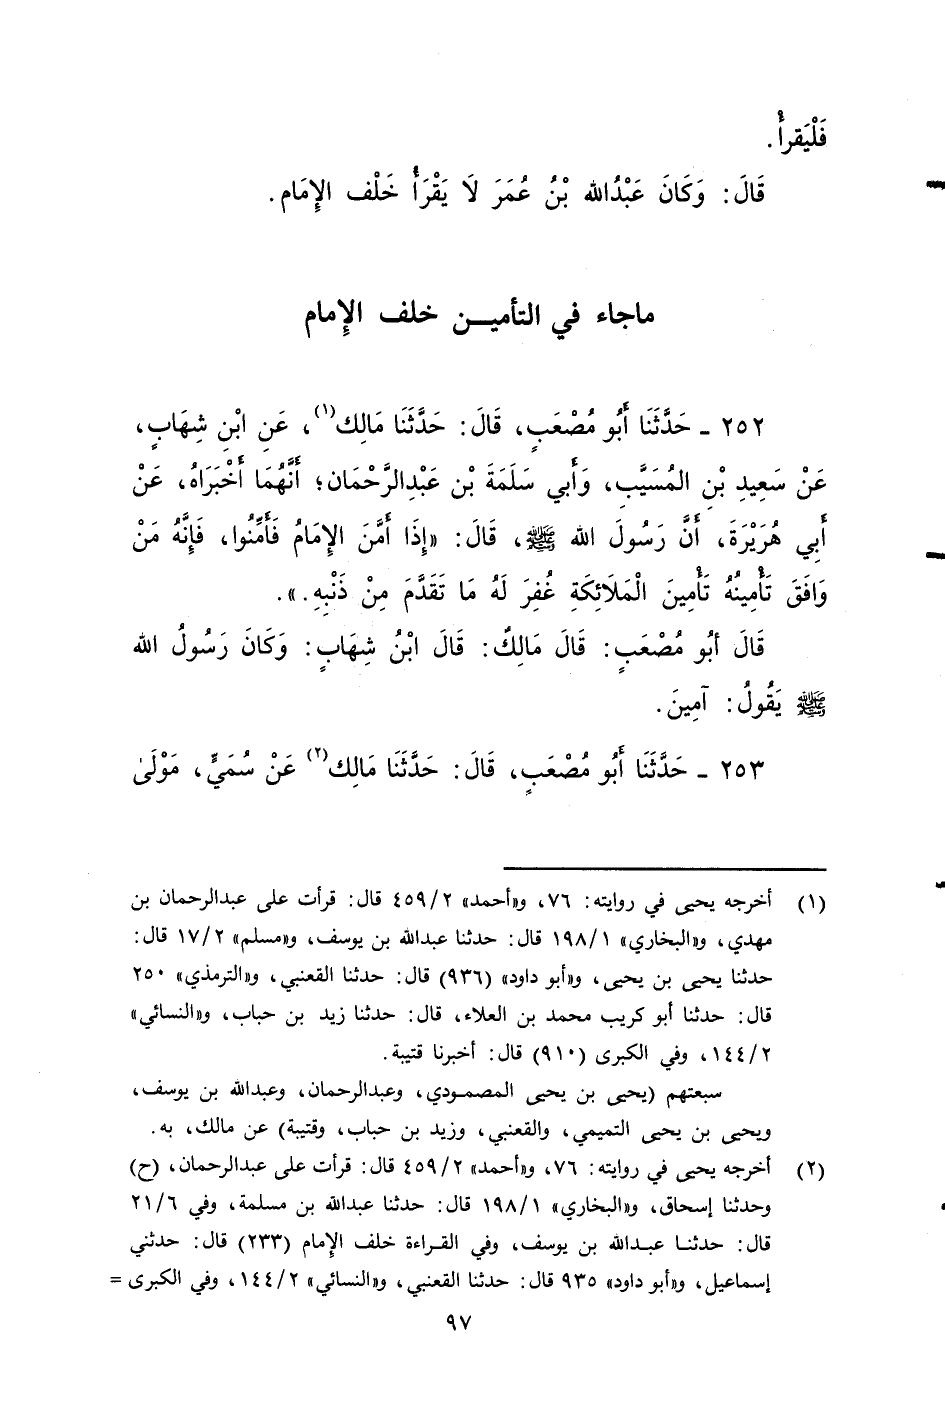 فَلْيَقرأْ.
قَالَ: وَكَانَ عَبْدُالله بْنُ عُمَرَ لَا يَقْرَأُ خَلْف الإِمَام.
ماجاء في التأميـن خلف الإمام
٢٥٢ ـ حَدَّثَنَا أَبُو مُصْعَبٍ، قَالَ: حَدَّثَنَا مَالِك(١)، عَنِ ابْنِ شِهَابٍ،
عَنْ سَعِيدِ بْنِ المُسَيَّبِ، وَأَبي سَلَمَةَ بْنِ عَبْدِالرَّحْمَان؛ أَنَّهُمَا أَخْبَرَاهُ، عَنْ
أَبِي هُرَيْرَةَ، أَنَّ رَسُولَ الله ﷺ، قَالَ: «إِذَا أَمَّنَ الإِمَامُ فَأَمِّنُوا، فَإِنَّهُ مَنْ
وَافَقَ تَأْمِينُهُ تَأْمِينَ الْمَلَائِكَةِ غُفِرَ لَهُ مَا تَقَدَّمَ مِنْ ذَنْبِهِ.».
قَالَ أبُو مُصْعَبٍ: قَالَ مَالِكٌ: قَالَ ابْنُ شِهَابٍ: وَكَانَ رَسُولُ الله
ﷺ يَقُولُ: آمِينَ.
٢٥٣ ـ حَدَّثَنَا أَبُو مُصْعَبٍ، قَالَ: حَدَّثَنَا مَالِك(٢) عَنْ سُمَيٍّ، مَوْلَىٰ
(١) أخرجه يحيى في روايته: ٧٦، و«أحمد» ٤٥٩/٢ قال: قرأت على عبدالرحمان بن
مهدي، و«البخاري» ١٩٨/١ قال: حدثنا عبدالله بن يوسف، و«مسلم» ١٧/٢ قال:
حدثنا يحيى بن يحيى، و«أبو داود» (٩٣٦) قال: حدثنا القعنبي، و«الترمذي» ٢٥٠
قال: حدثنا أبو كريب محمد بن العلاء، قال: حدثنا زيد بن حباب، و«النسائي»
١٤٤/٢، وفي الكبرى (٩١٠) قال: أخبرنا قتيبة.
سبعتهم (يحيى بن يحيى المصمـودي، وعبدالرحمان، وعبدالله بن يوسف،
ويحيى بن يحيى التميمي، والقعنبي، وزيد بن حباب، وقتيبة) عن مالك، به.
(٢) أخرجه يحيى في روايته: ٧٦، و«أحمد» ٤٥٩/٢ قال: قرأت على عبدالرحمان، (ح)
وحدثنا إسحاق، و«البخاري» ١٩٨/١ قال: حدثنا عبدالله بن مسلمة، وفي ٢١/٦
قال: حدثنـا عبـدالله بن يوسف، وفي القـراءة خلف الإمام (٢٣٣) قال: حدثني
إسماعيل، و«أبو داود» ٩٣٥ قال: حدثنا القعنبي، و«النسائي» ١٤٤/٢، وفي الكبرى =
٩٧